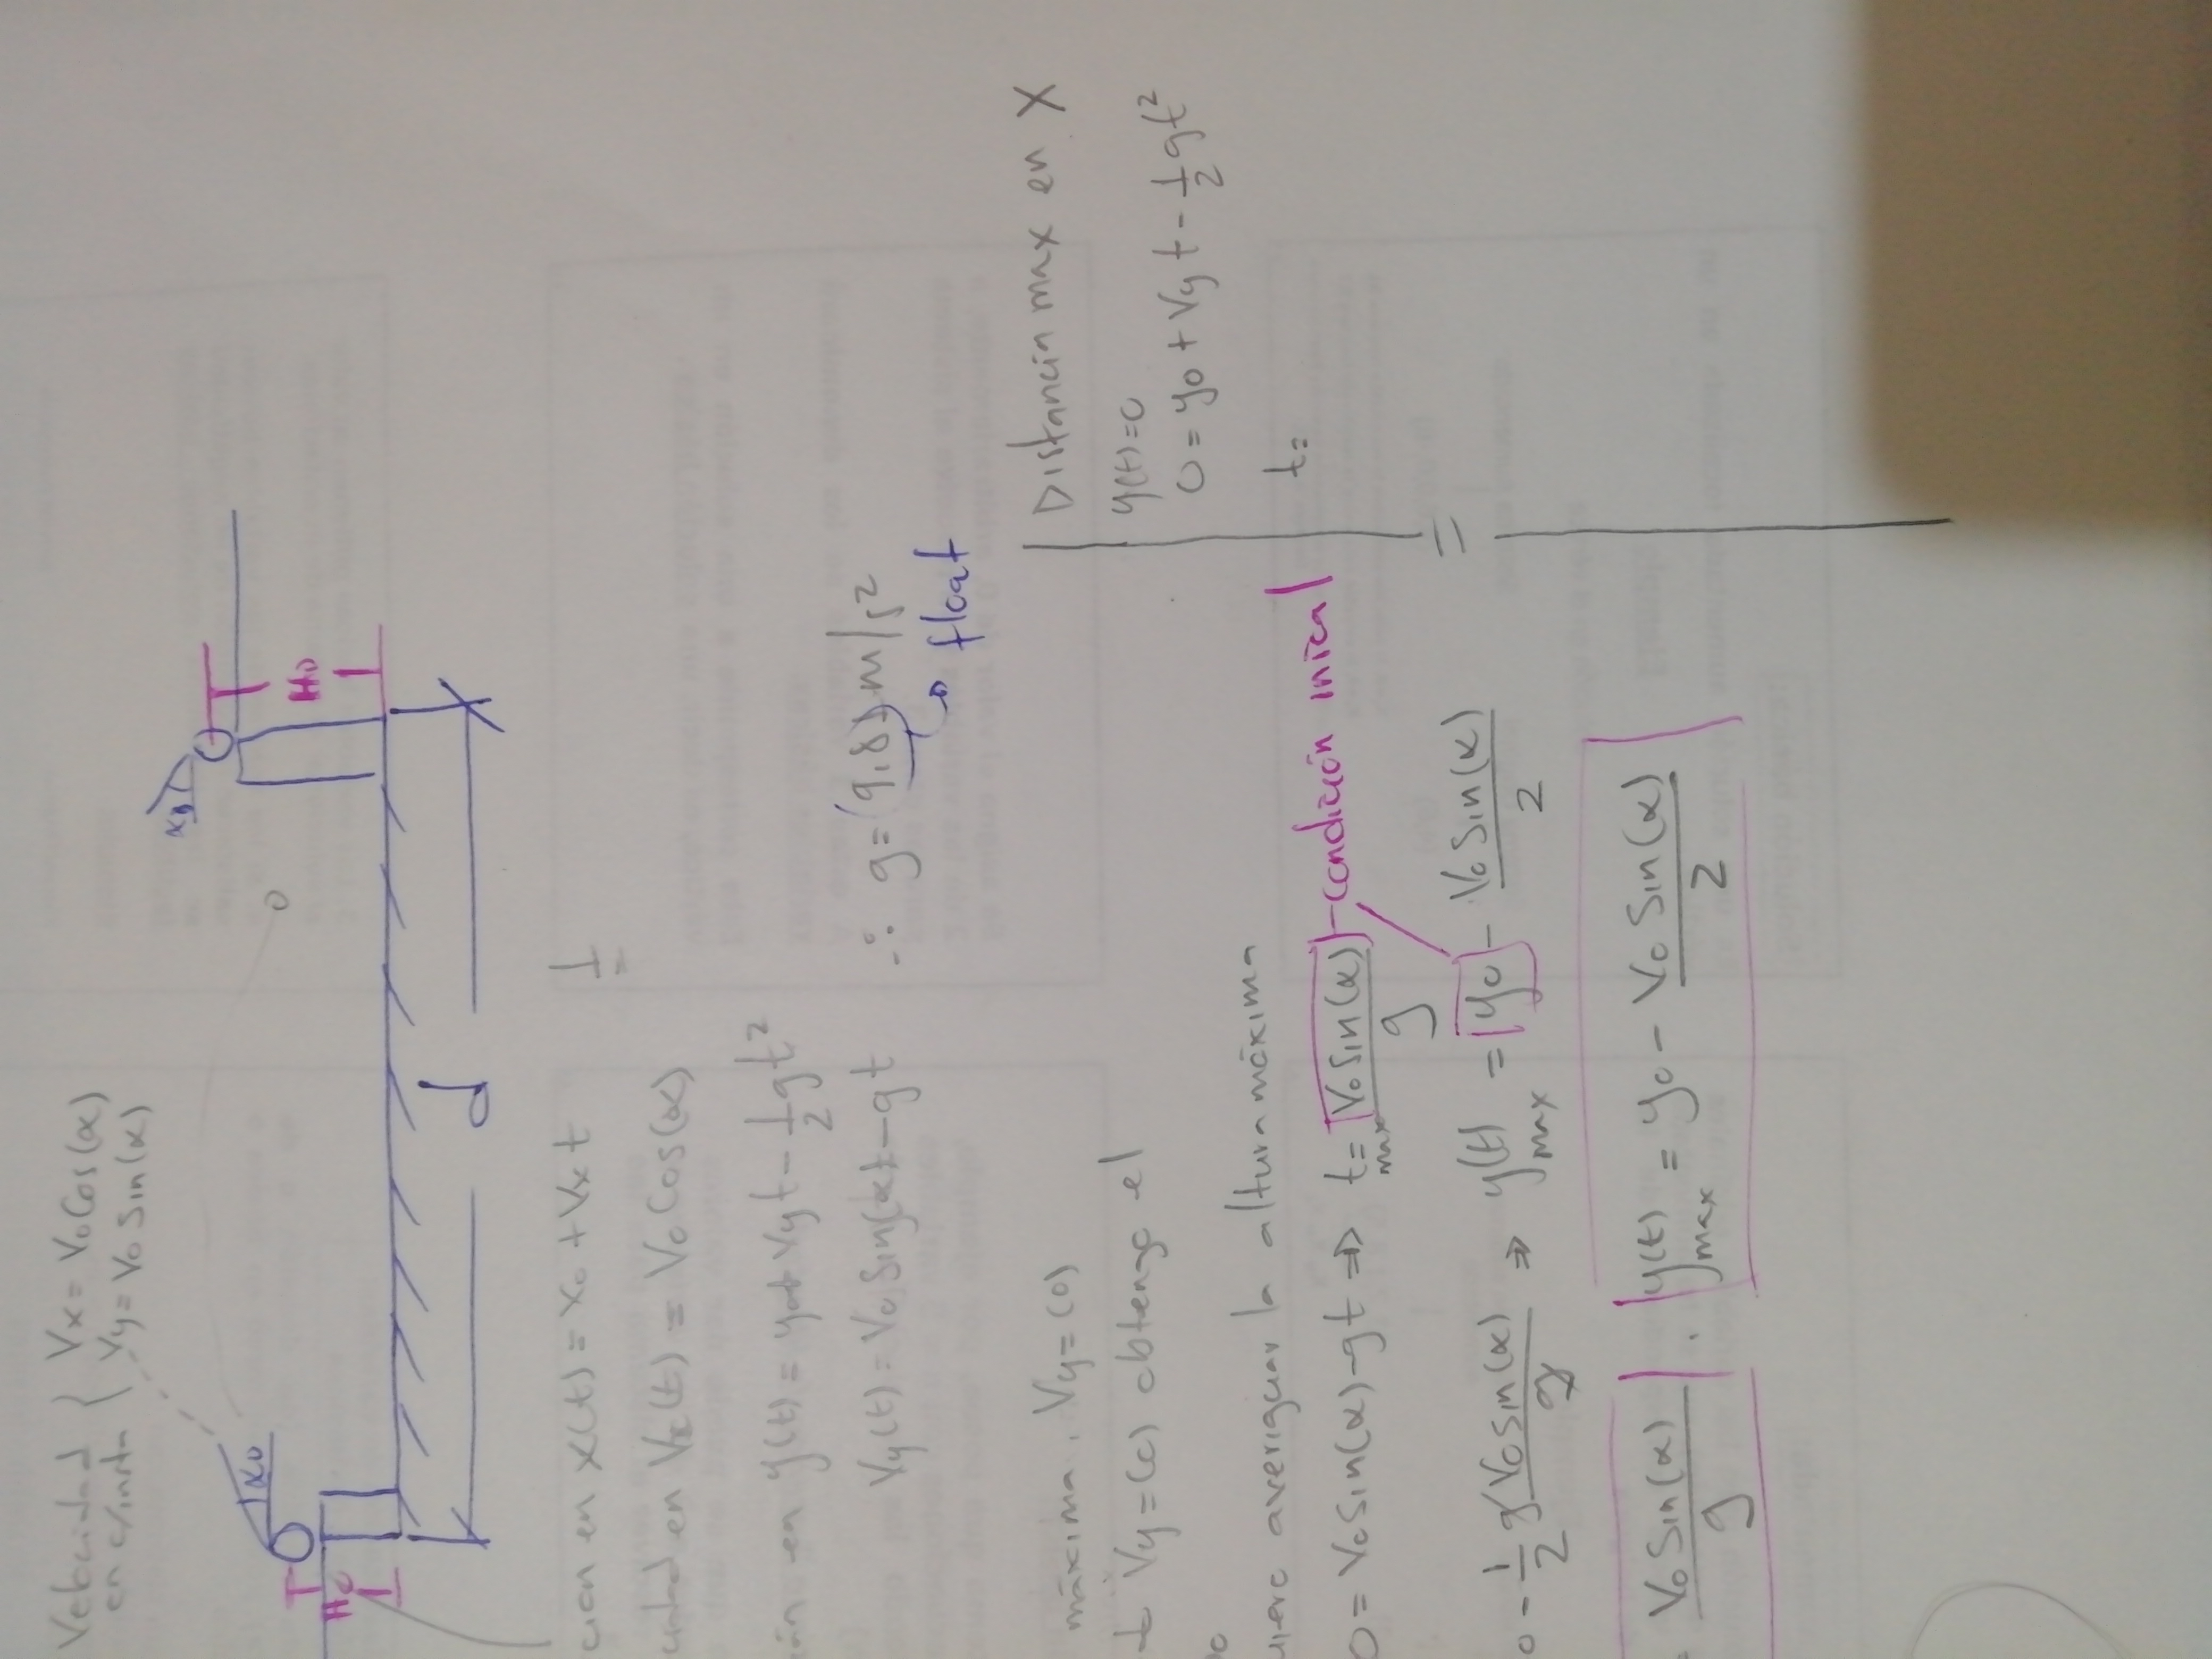 Velocidad { Vx = V0 Cos(α)
en c/inst { Vy = V0 Sin(α)
α0
H0
α0
H0
d
x(t) = x0 + Vx t
en Vx(t) = V0 Cos(α)
en y(t) = y0 + Vy t - 1/2 gt²
∴ g = (9,8) m/s²
Vy(t) = V0 Sin(α) - gt
float
máxima. Vy = (0)
t Vy = (0) obtengo el
averiguar la altura máxima
0 = V0 Sin(α) - gt ⇒ t max = V0 Sin(α) / g - condición inical
0 - 1/2 g V0 Sin(α) / g ⇒ y(t) max = y0 - V0 Sin(α) / 2
V0 Sin(α) / g . y(t) max = y0 - V0 Sin(α) / 2
Distancia max en X
y(t) = 0
0 = y0 + Vy t - 1/2 gt²
t =